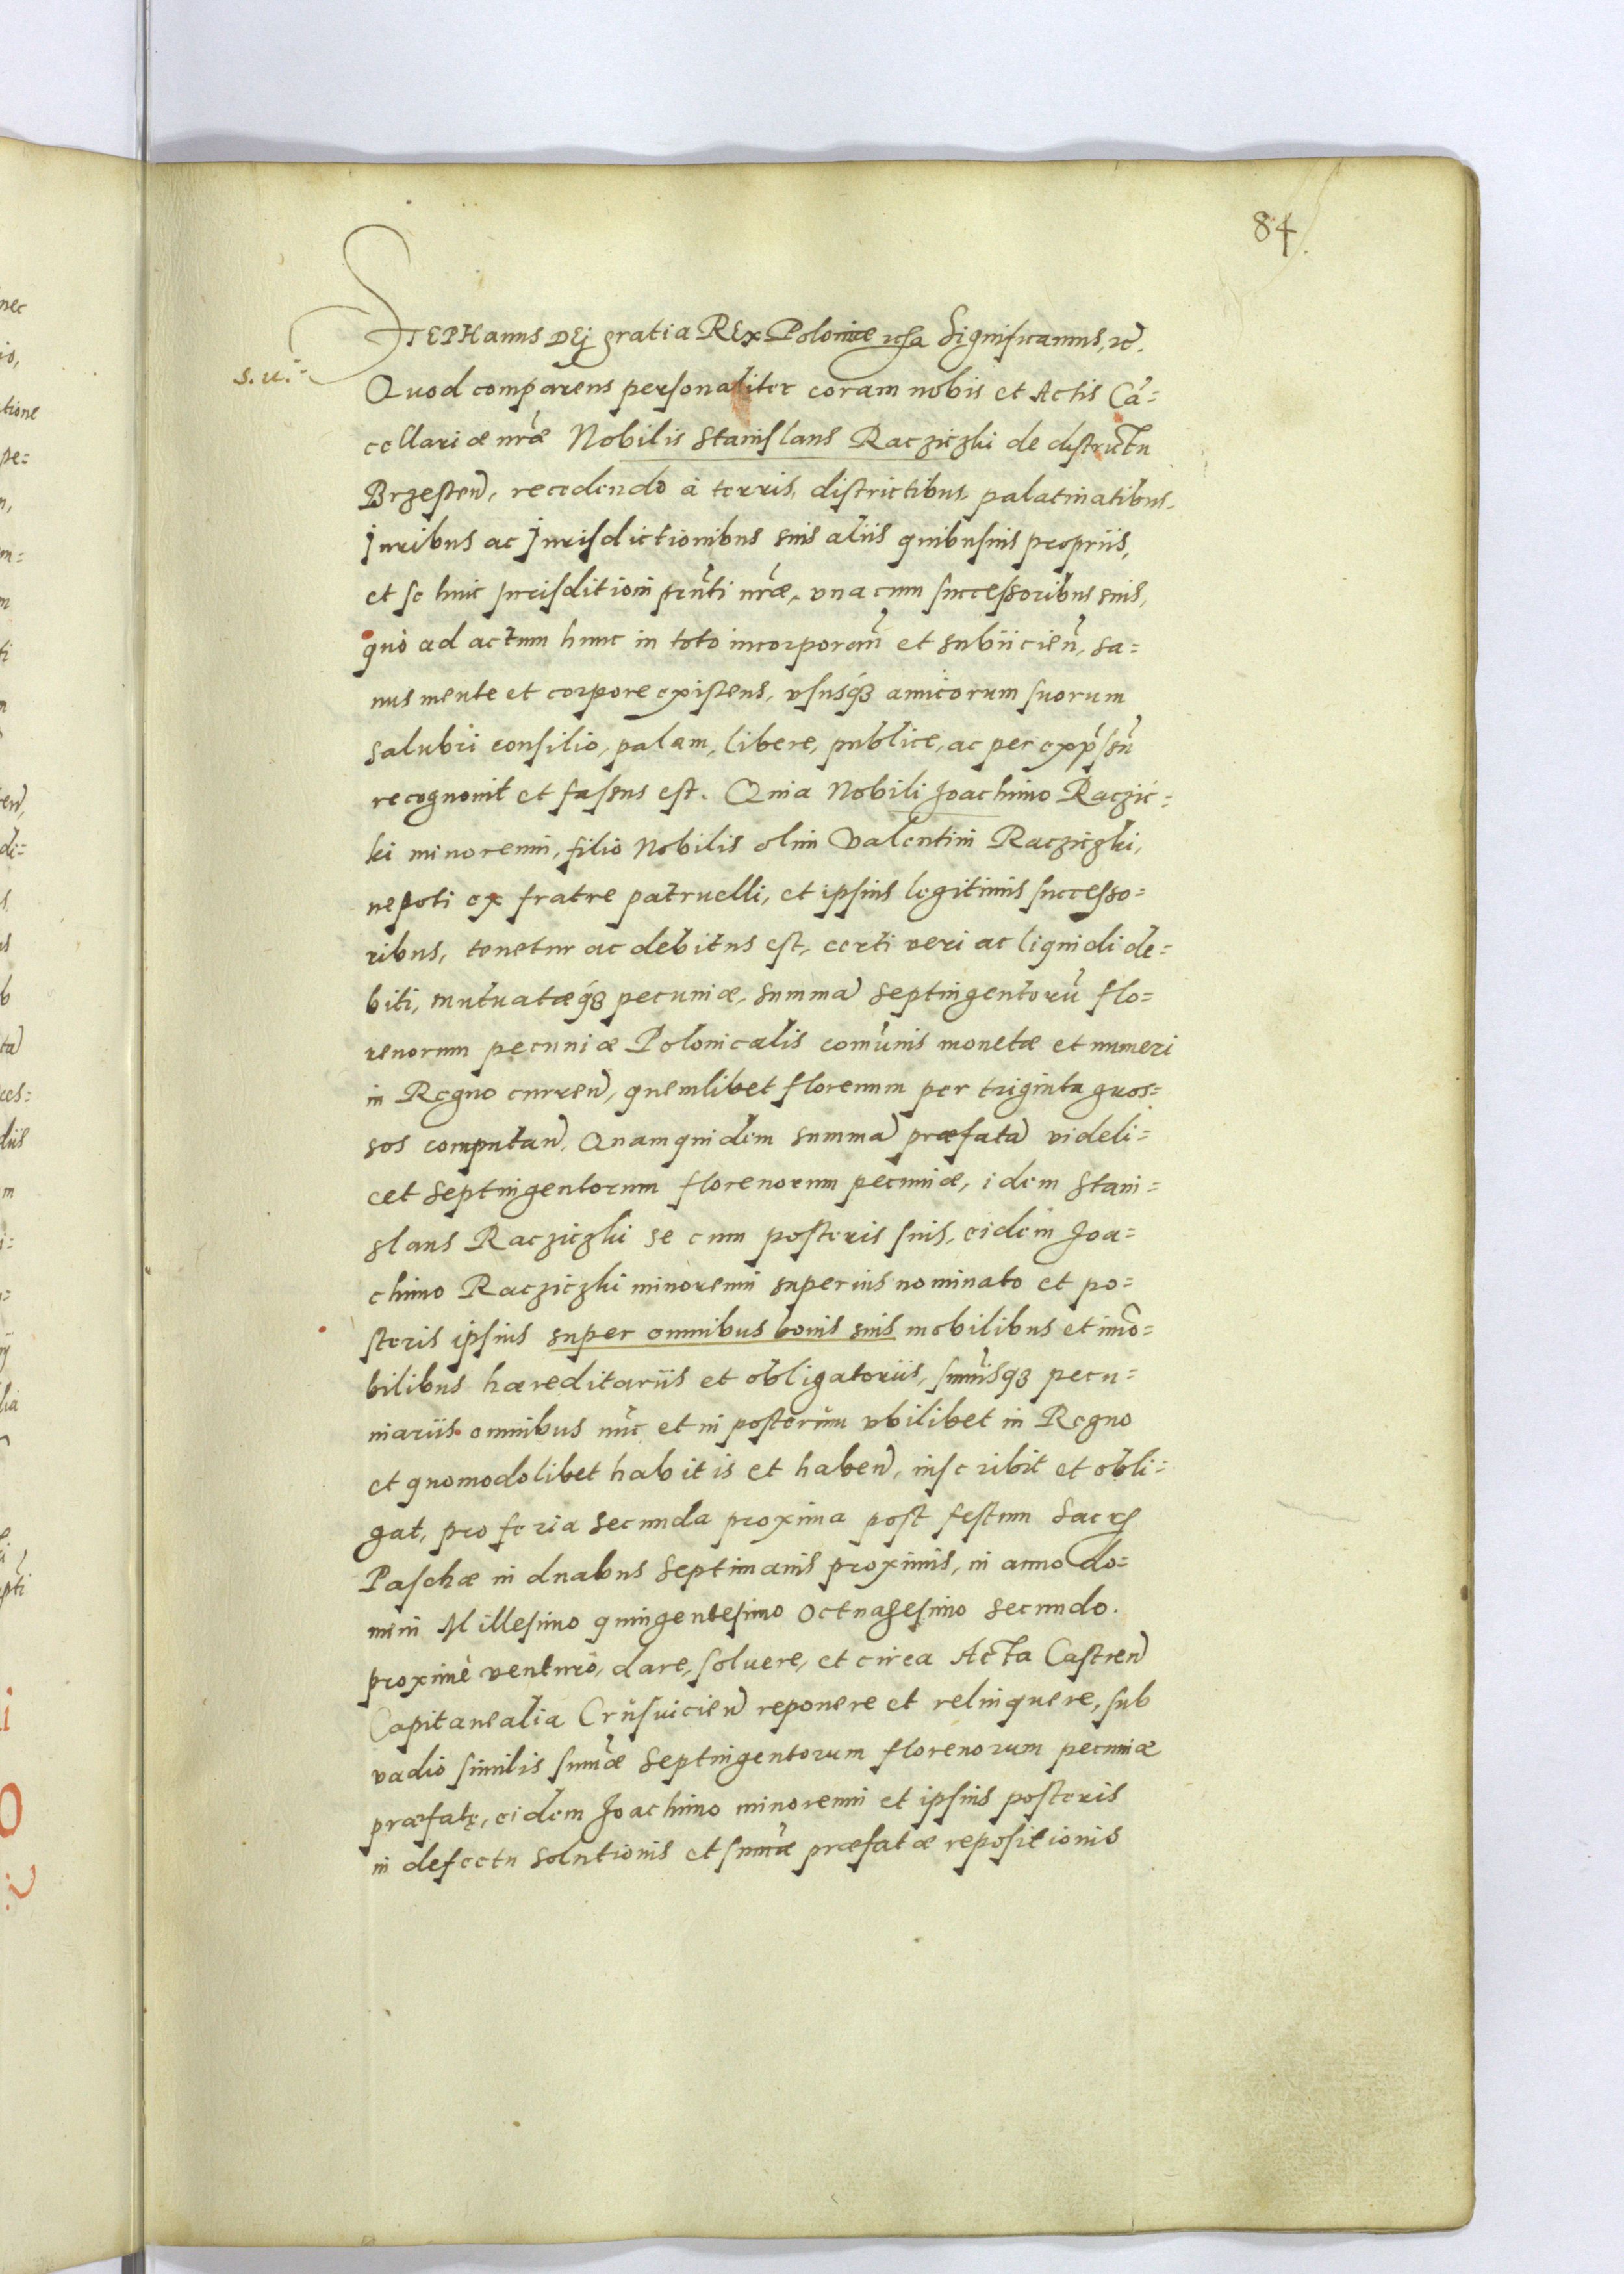 84
STEPHanus DEj gratia REx Poloniae Significamus, etc.
s. u.
Quod comparens personaliter coram nobis et Actis Cã=
cellariae nrãe Nobilis Stanislaus Racziczki de districtu
Brzesten, recedendo à terris, districtibus, palatinatibus,
Juribus ac Jurisdictionibus suis aliis quibusuis propriis,
et se huic jurisditioni prñti nrãe, vna cum successoribus suis,
quò ad actum hunc in toto incorporañ et subiicieñ, sa=
nus mente et corpore existens, vsusq3 amicorum suorum
salubri consilio, palam, libere, publice, ac per expsũ
recognouit et fassus est. Quia Nobili Joachimo Raczic=
ki minorenni, filio Nobilis olim Valentini Racziczki,
nepoti ex fratre patruelli, et ipsius legitimis successo=
ribus, tenetur ac debitus est, certi veri ac liquidi de=
biti, mutuataeq3 pecuniae, summã septingentorũ flo=
renorum pecuniae Polonicalis com̃unis monetae et numeri
in Regno curreñ, quemlibet florenum per triginta gros=
sos computañ. Quamquidem summã praefatã videli=
cet septingentorum florenorum pecuniae, idem Stani=
slaus Racziczki se cum posteris suis, eidem Joa=
chimo Racziczki minorenni superius nominato et po=
steris ipsius super omnibus bonis suis mobilibus et imõ=
bilibus haereditariis et obligatoriis, sum̃isq3 pecu=
niariis omnibus nũc et in posterum vbilibet in Regno
et quomodolibet habitis et habeñ, inscribit et obli=
gat, pro feria secunda proxima post festum Sacrę
Paschae in duabus septimanis proximis, in anno do=
mini Millesimo quingentesimo octuagesimo secundo.
proximè venturo, dare, soluere, et circa Acta Castreñ
Capitanealia Crusuicieñ reponere et relinquere, sub
vadio similis sum̃ae septingentorum florenorum pecuniae
praefatę, eidem Joachimo minorenni et ipsius posteris
in defectu solutionis et sum̃ae praefatae repositionis